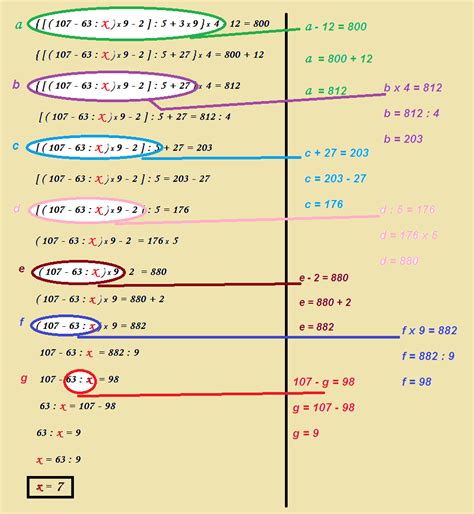 a { [ ( 107 - 63 : x ) x 9 - 2 ] : 5 + 3 x 9 } x 4 12 = 800
a - 12 = 800
{ [ ( 107 - 63 : x ) x 9 - 2 ] : 5 + 27 } x 4 = 800 + 12
a = 800 + 12
b { [ ( 107 - 63 : x ) x 9 - 2 ] : 5 + 27 } x 4 = 812
a = 812
b x 4 = 812
[ ( 107 - 63 : x ) x 9 - 2 ] : 5 + 27 = 812 : 4
b = 812 : 4
b = 203
c [ ( 107 - 63 : x ) x 9 - 2 ] : 5 + 27 = 203
c + 27 = 203
[ ( 107 - 63 : x ) x 9 - 2 ] : 5 = 203 - 27
c = 203 - 27
c = 176
d [ ( 107 - 63 : x ) x 9 - 2 ] : 5 = 176
d : 5 = 176
( 107 - 63 : x ) x 9 - 2 = 176 x 5
d = 176 x 5
d = 880
e ( 107 - 63 : x ) x 9 2 = 880
e - 2 = 880
( 107 - 63 : x ) x 9 = 880 + 2
e = 880 + 2
f ( 107 - 63 : x ) x 9 = 882
e = 882
f x 9 = 882
107 - 63 : x = 882 : 9
f = 882 : 9
g 107 - 63 : x = 98
107 - g = 98
f = 98
63 : x = 107 - 98
g = 107 - 98
63 : x = 9
g = 9
x = 63 : 9
x = 7